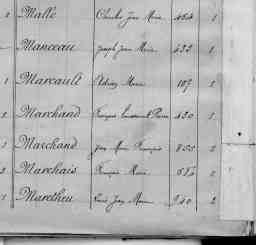 1 Malle Charles Jean Marie 464 1
Manceau Joseph Jean Marie 432 1
1 Marcault Marie 107 1
1 Marchand François Pierre 420 1
1 Marchand Jean Marie François 855 2
2 Marchais François Marie 2
1 Maretheu Louis Jean Marie 940 2